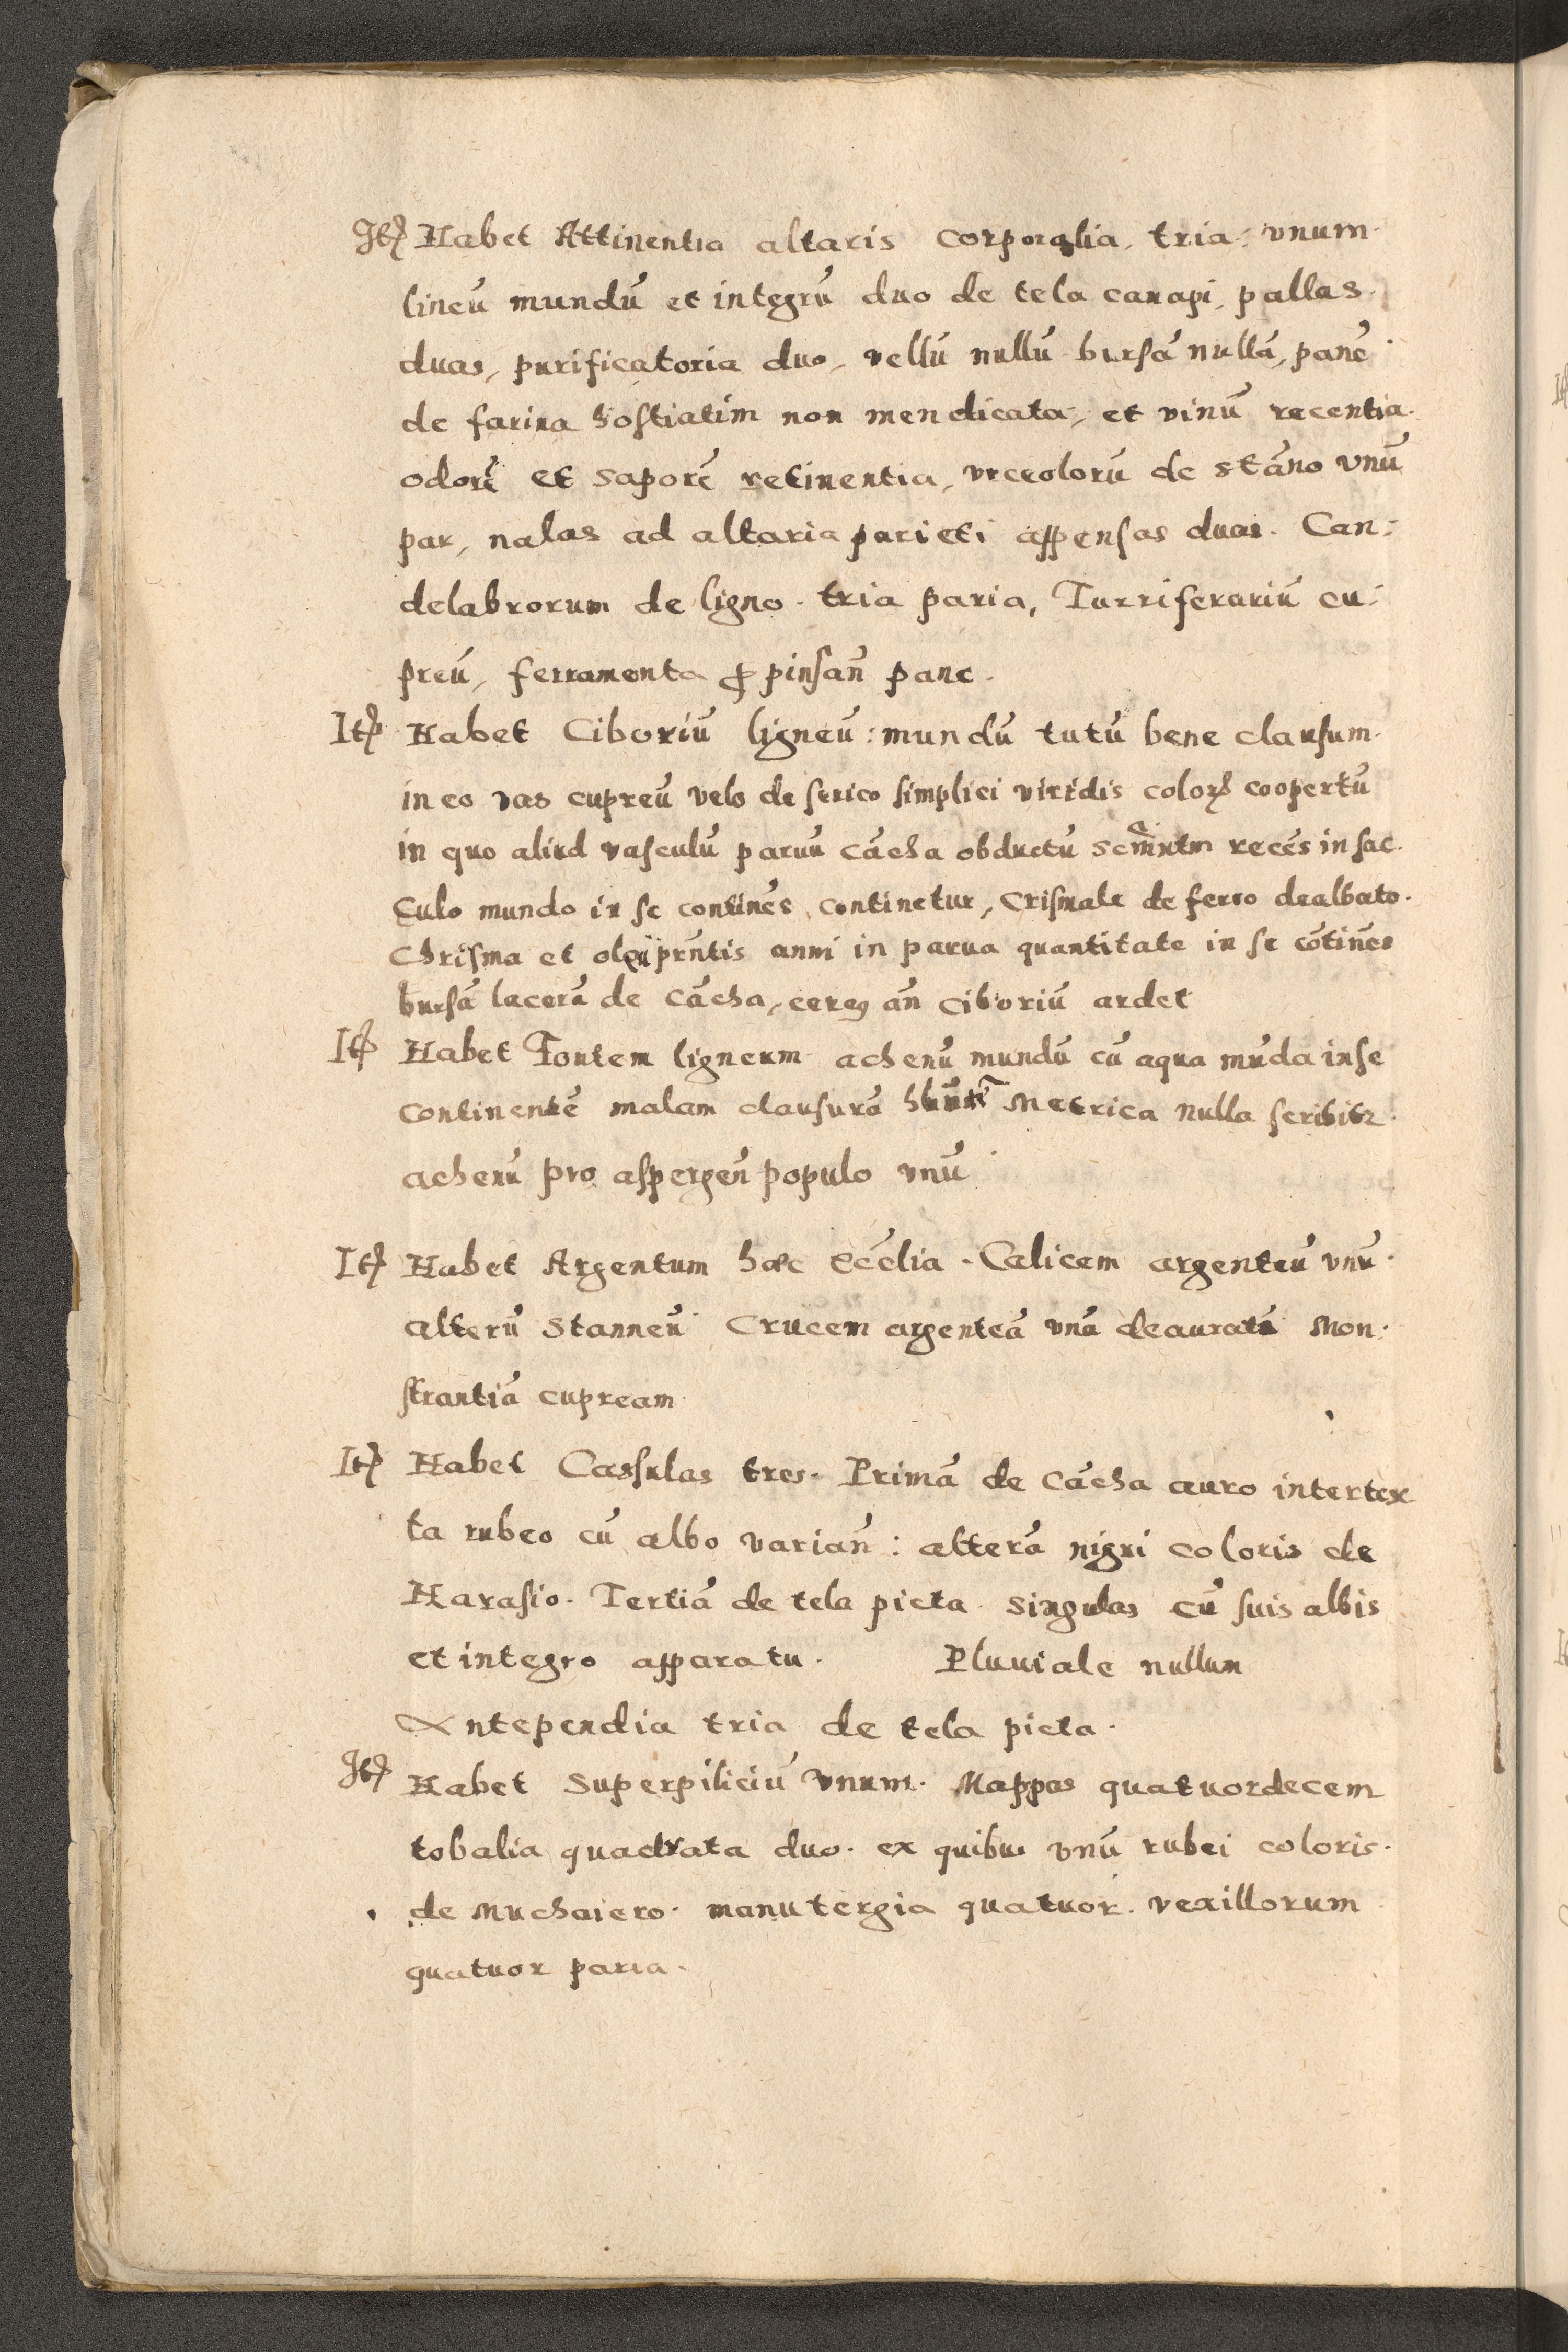 Itē Habet Attinentia altaris Corporalia, tria: vnum
lineū mundū et integrū duo de tela canapi, pallas
duas, purificatoria duo, vellū nullū bursā nullā, panē
de farina hostiatim non mendicata, et vinū recentia
odorē et saporē retinentia, vrceolorū de stāno vnū
par, nalas ad altaria parieti appensas duas. Can:
delabrorum de ligno tria paria, Turriferariū cu:
preū, ferramenta ꝓ pinsan̄ pane.
Itē Habet Ciboriū ligneū: mundū tutū bene clausum
in eo vas cupreū velo de serico simplici viridis colorꝭ coopertū
in quo aliud vasculū paruū cācha obductū recēs in sac
culo mundo in se continēs continetur, Crismale de ferro dealbato.
Chrisma et olei prn̄tis anni in parua quantitate in se cōtinēs
bursā lacerā de cācha, cereꝰ an̄ ciboriū ardet
Itē Habet Fontem ligneum achenū mundū cū aqua mūda in se
continentē malam clausurā Metrica nulla scribitr
achenū pro aspergen̄ populo vnū
Itē Habet Argentum hæc Eccl̄ia. Calicem argenteū vnū
alterū Stanneū Crucem argenteā vnā deauratā Mon:
strantiā cupream
Itē Habet Cassulas tres. Primā de cācha auro intertex
ta rubeo cū albo varian̄: alterā nigri coloris de
Harasio. Tertiā de tela picta singulas cū suis albis
et integro apparatu. Pluuiale nullum
Antependia tria de tela picta.
Itē Habet Superpiliciū vnum. Mappas quatuordecem
tobalia quadrata duo. ex quibus vnū rubei coloris.
de Muchaiero. manutergia quatuor. vexillorum
quatuor paria.